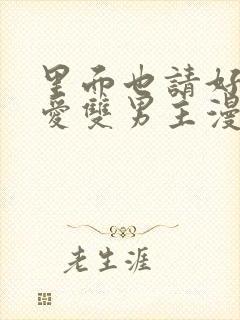 里而也請好
愛雙男主漫
老生涯